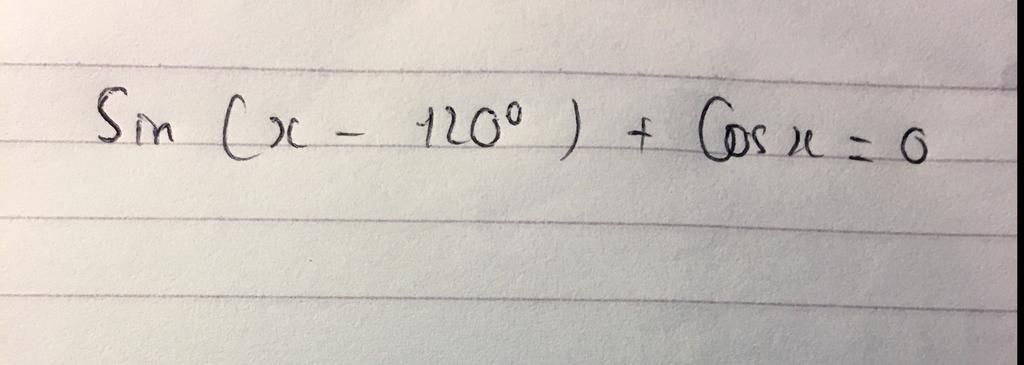 Sin (x - 120°) + Cos x = 0